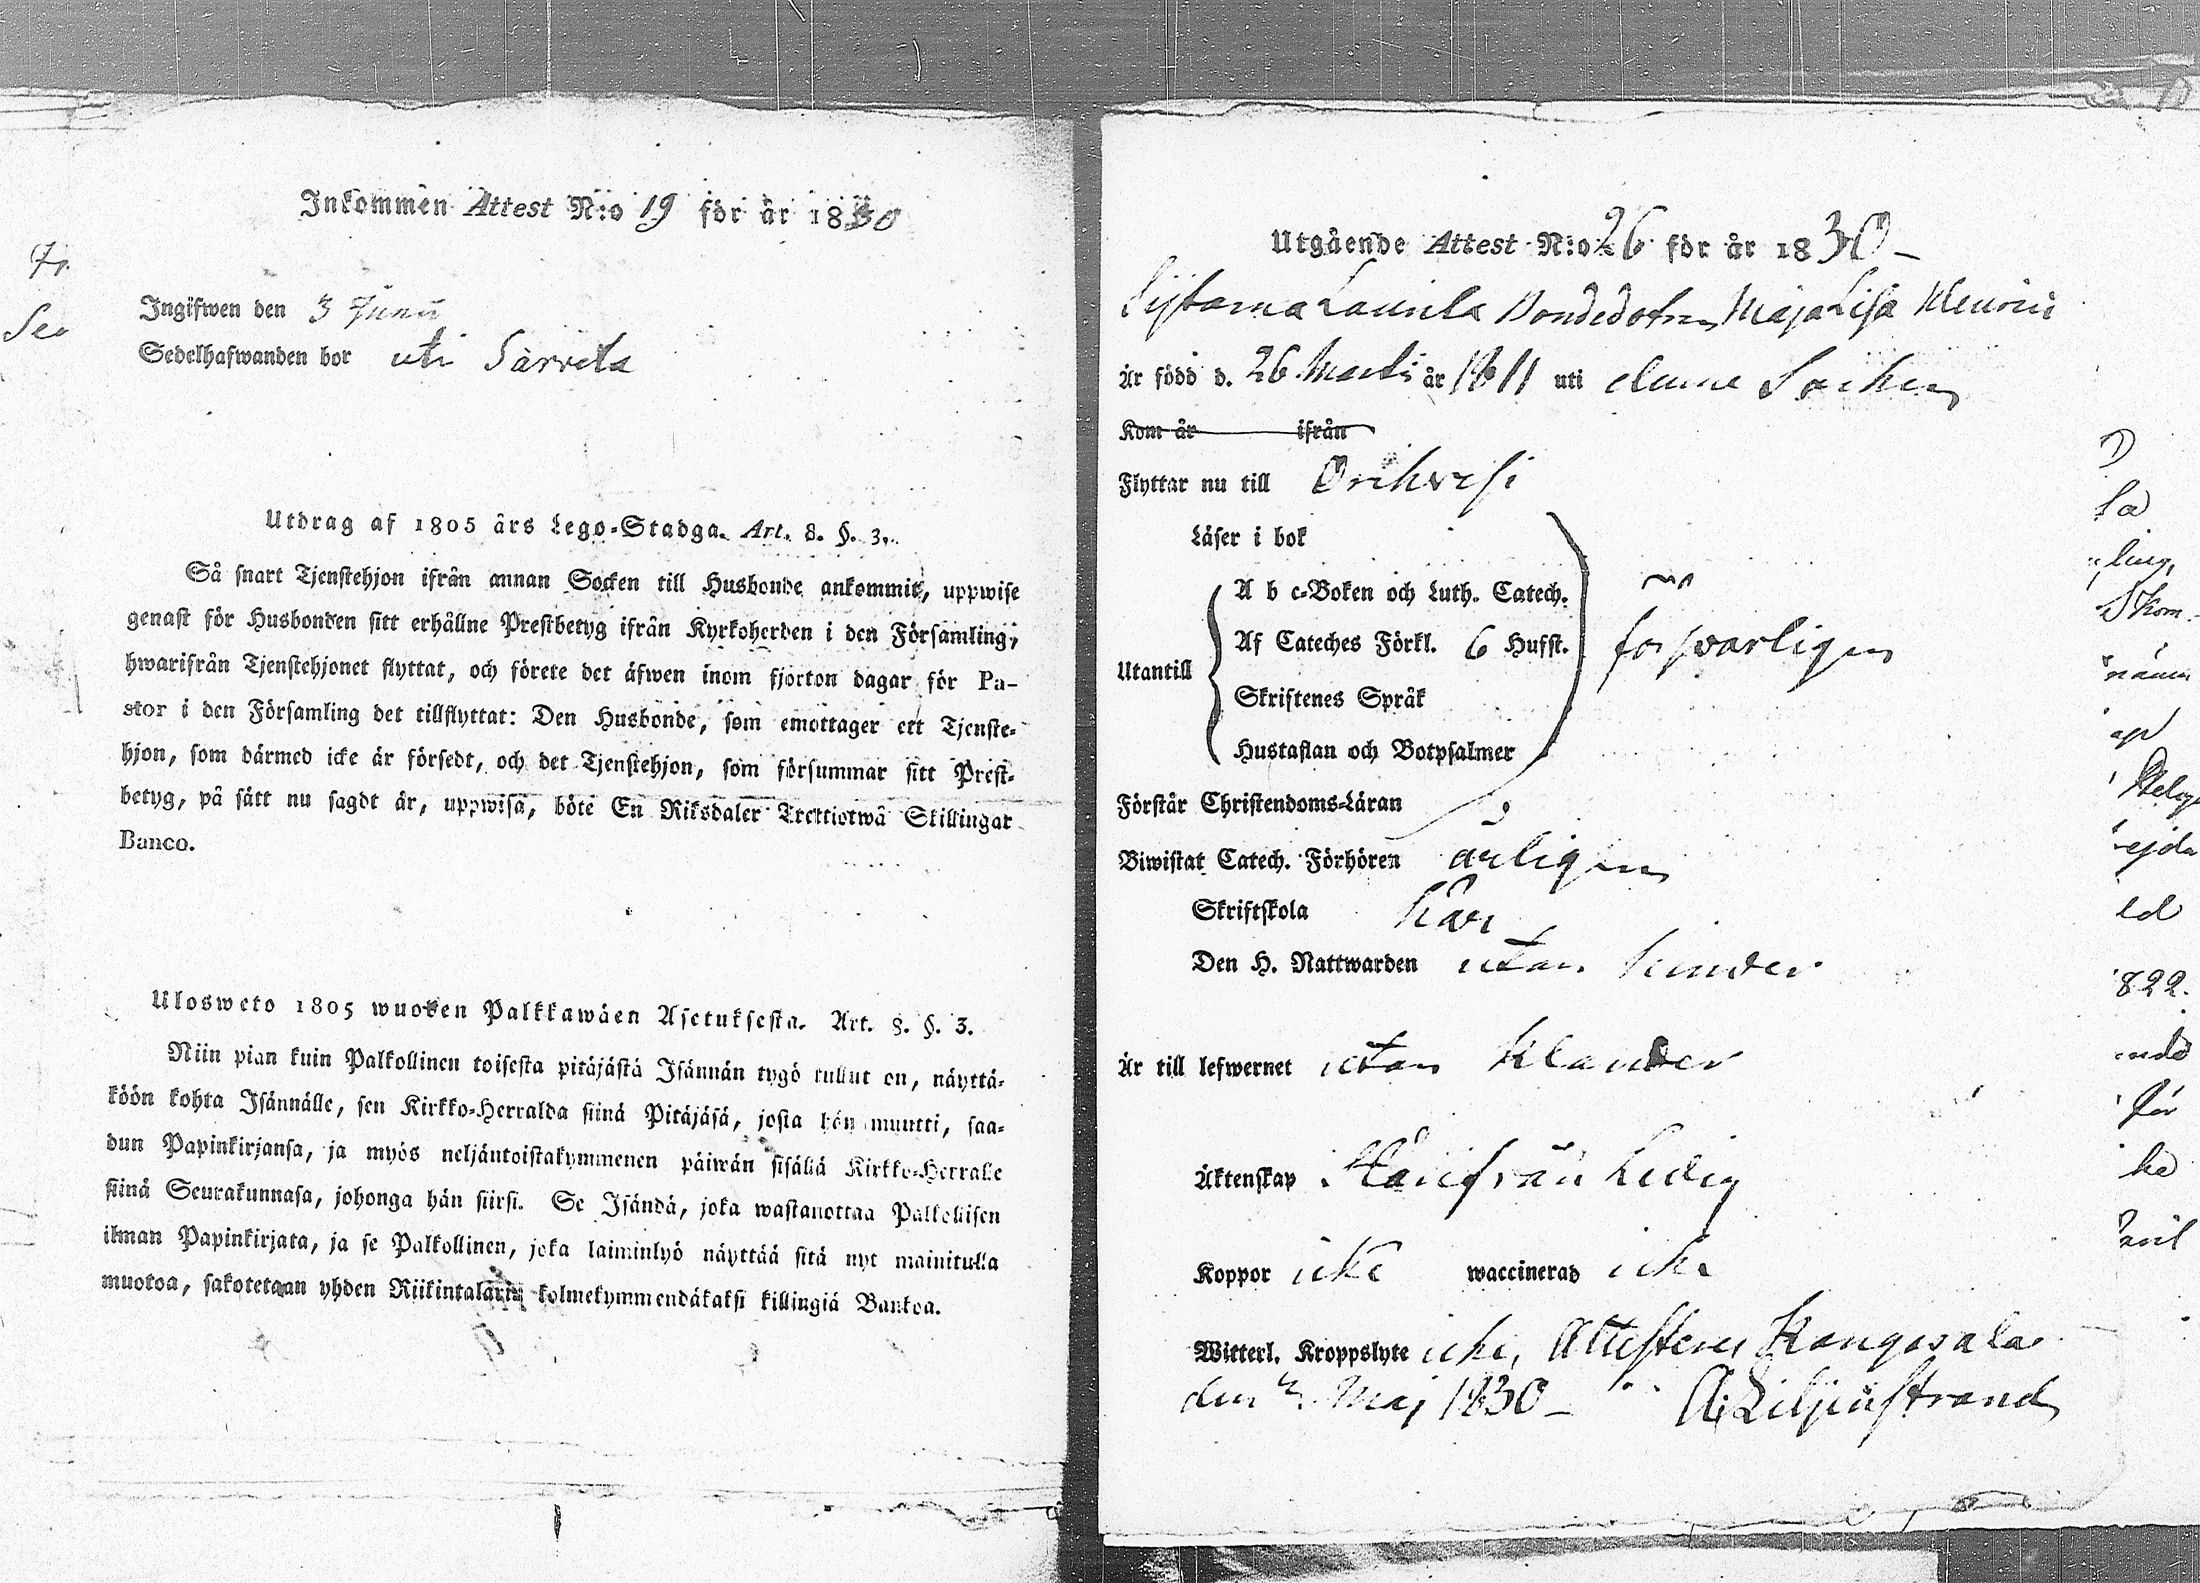 Inkommen Attest N:o 19 för år 1830
Ingifwen den 3 Junii
Sedelhafwanden bor uti Särvelä
Utdrag af 1805 års Lego-Stadga. Art. 8. §. 3.
Så snart Tjenstehjon ifrån annan Socken till Husbonde ankommit, uppwise
genast för Husbonden sitt erhållne Prestbetyg ifrån Kyrkoherden i den Församling,
hwarifrån Tjenstehjonet flyttat, och förete det äfwen inom fjorton dagar för Pa-
stor i den Församling det tillflyttat: Den Husbonde, som emottager ett Tjenste-
hjon, som därmed icke är försedt, och det Tjenstehjon, som försummar sitt Prest-
betyg, på sätt nu sagdt är, uppwisa, böte En Riksdaler Trettiotwå Skillingar
Banco.
Ulosweto 1805 wuoden Palkkawäen Asetuksesta. Art. 8. §. 3.
Niin pian kuin Palkollinen toisesta pitäjästä Isännän tygö tullut on, näyttä-
köön kohta Isännälle, sen Kirkko-Herralda siinä Pitäjäsä, josta hän muutti, saa-
dun Papinkirjansa, ja myös neljäntoistakymmenen päiwän sisällä Kirkko-Herralle
siinä Seurakunnasa, johonga hän siirsi. Se Isändä, joka wastanottaa Palkollisen
ilman Papinkirjata, ja se Palkollinen, joka laiminlyö näyttää sitä nyt mainitulla
muotoa, sakotetaan yhden Riikintalarin kolmekymmendäkaksi killingiä Bankoa.
Utgående Attest N:o 26 för år 1830
Laurila Bondedotren Maja Lisa
Är född d. 26 Martii år 1811 uti denna Socken
Kom år ifrån
Flyttar nu till Orihvesi
Läser i bok
A b c-Boken och Luth. Catech.
Af Cateches Förkl. 6 Hufst. försvarligen
Utantill
Skriftenes Språk
Hustaflan och Botpsalmer
Förstår Christendoms-Läran
Biwistat Catech. Förhören årligen
Skriftskola
Den H. Nattwarden utan hinder
Är till lefwernet utan klander
Äktenskap Härifrån Ledig
Koppor icke waccinerad icke
Witterl. Kroppslyte icke, Attesterar Kangasala
den Maj 1830 A Liljenstrand
822.
för